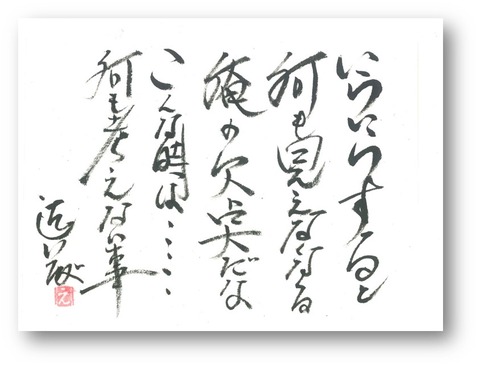 いらいらすると
何も見えなくなる
俺の欠点だな
こんな時は・・・・・
何も考えない事
え